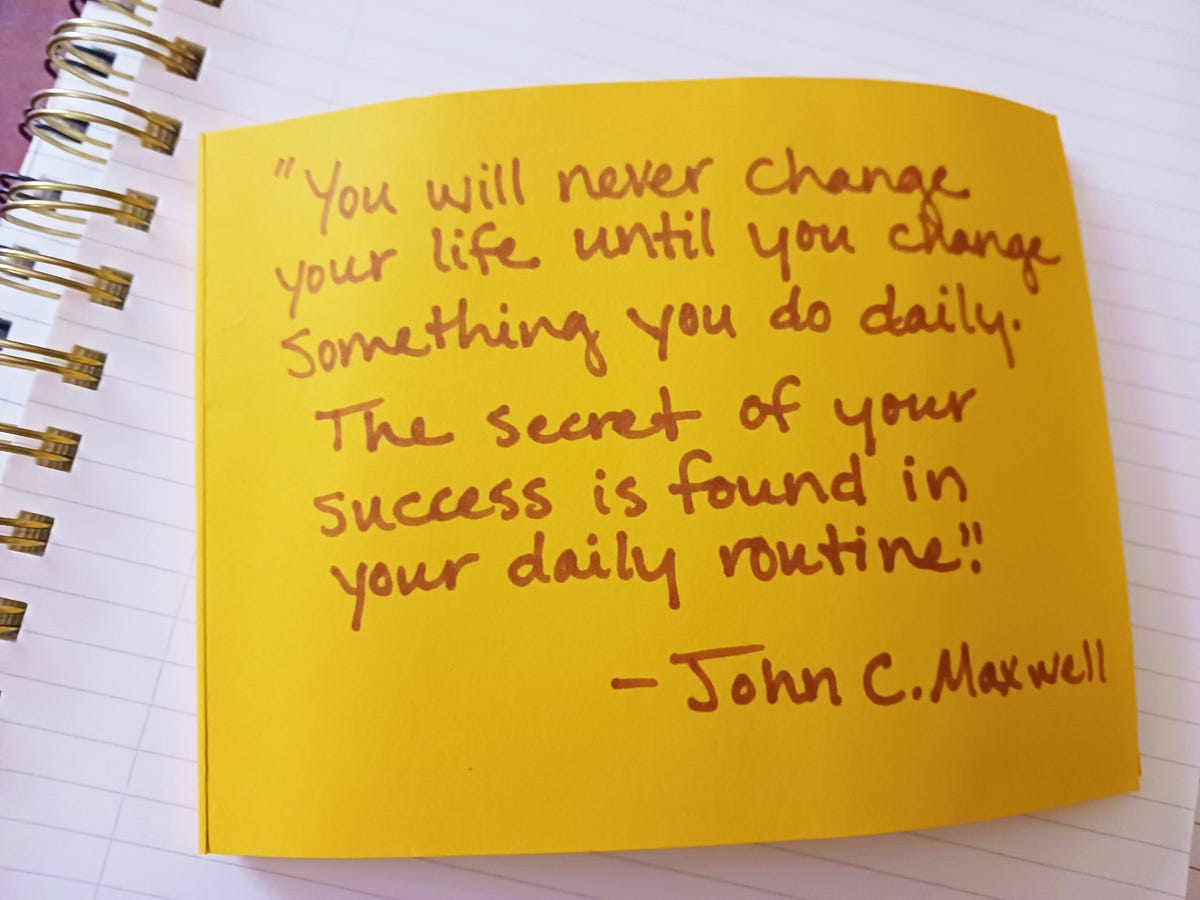 "You will never change
your life until you change
something you do daily.
The secret of your
success is found in
your daily routine."
- John C. Maxwell